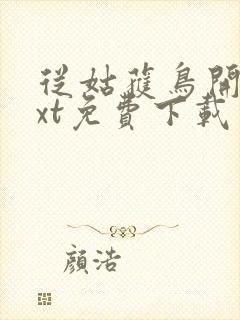 從姑蒦鳥開
xt免費下載
顏浩